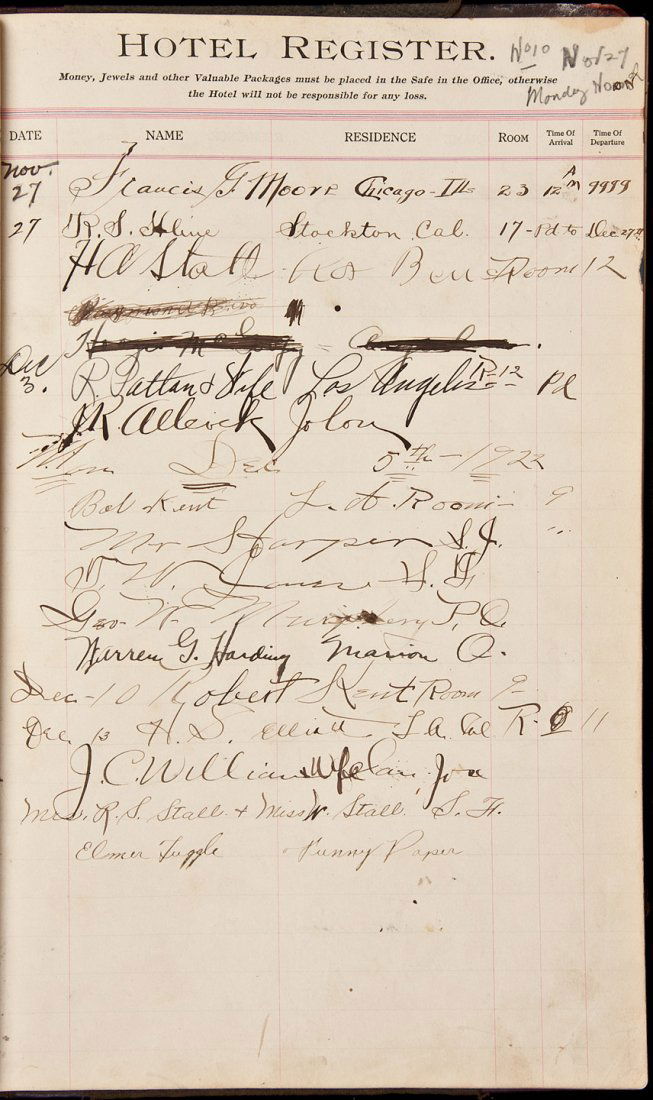 HOTEL REGISTER.
No 10 Nov 27
Monday
Money, Jewels and other Valuable Packages must be placed in the Safe in the Office, otherwise
the Hotel will not be responsible for any loss.
DATE NAME RESIDENCE ROOM Time Of Arrival Time Of Departure
Nov. 27 Francis J Moore Chicago - Ills 23 12 AM 9999
27 R. S. Hline Stockton Cal. 17 - Pd to Dec 27th
H A Stall Room 12
Dec 3. R. Pattan & Wife Los Angeles R-12 Pd
J.R. Jolon
Dec 5th - 1922
Bob Kent L. A. Room - 9
Mr Harper S. J. "
W. W. S. F.
Geo. W. P. O.
Warren G. Harding Marion O.
Dec - 10 Robert Kent Room 9
Dec 13 H. S. Elliott L A. Cal R - 11
J. C. William
Mrs. R. S. Stall & Miss W. Stall S. F.
Elmer Tuggle Funny Paper